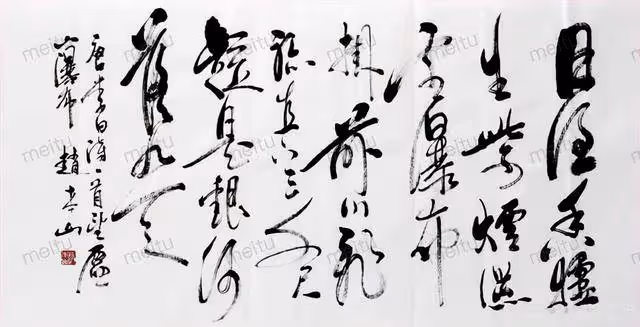 日照香爐
生紫煙遙
看瀑布
掛前川飛
流直下三千尺
疑是銀河
落九天
唐李白詩一首望廬
山瀑布 趙山
meitu